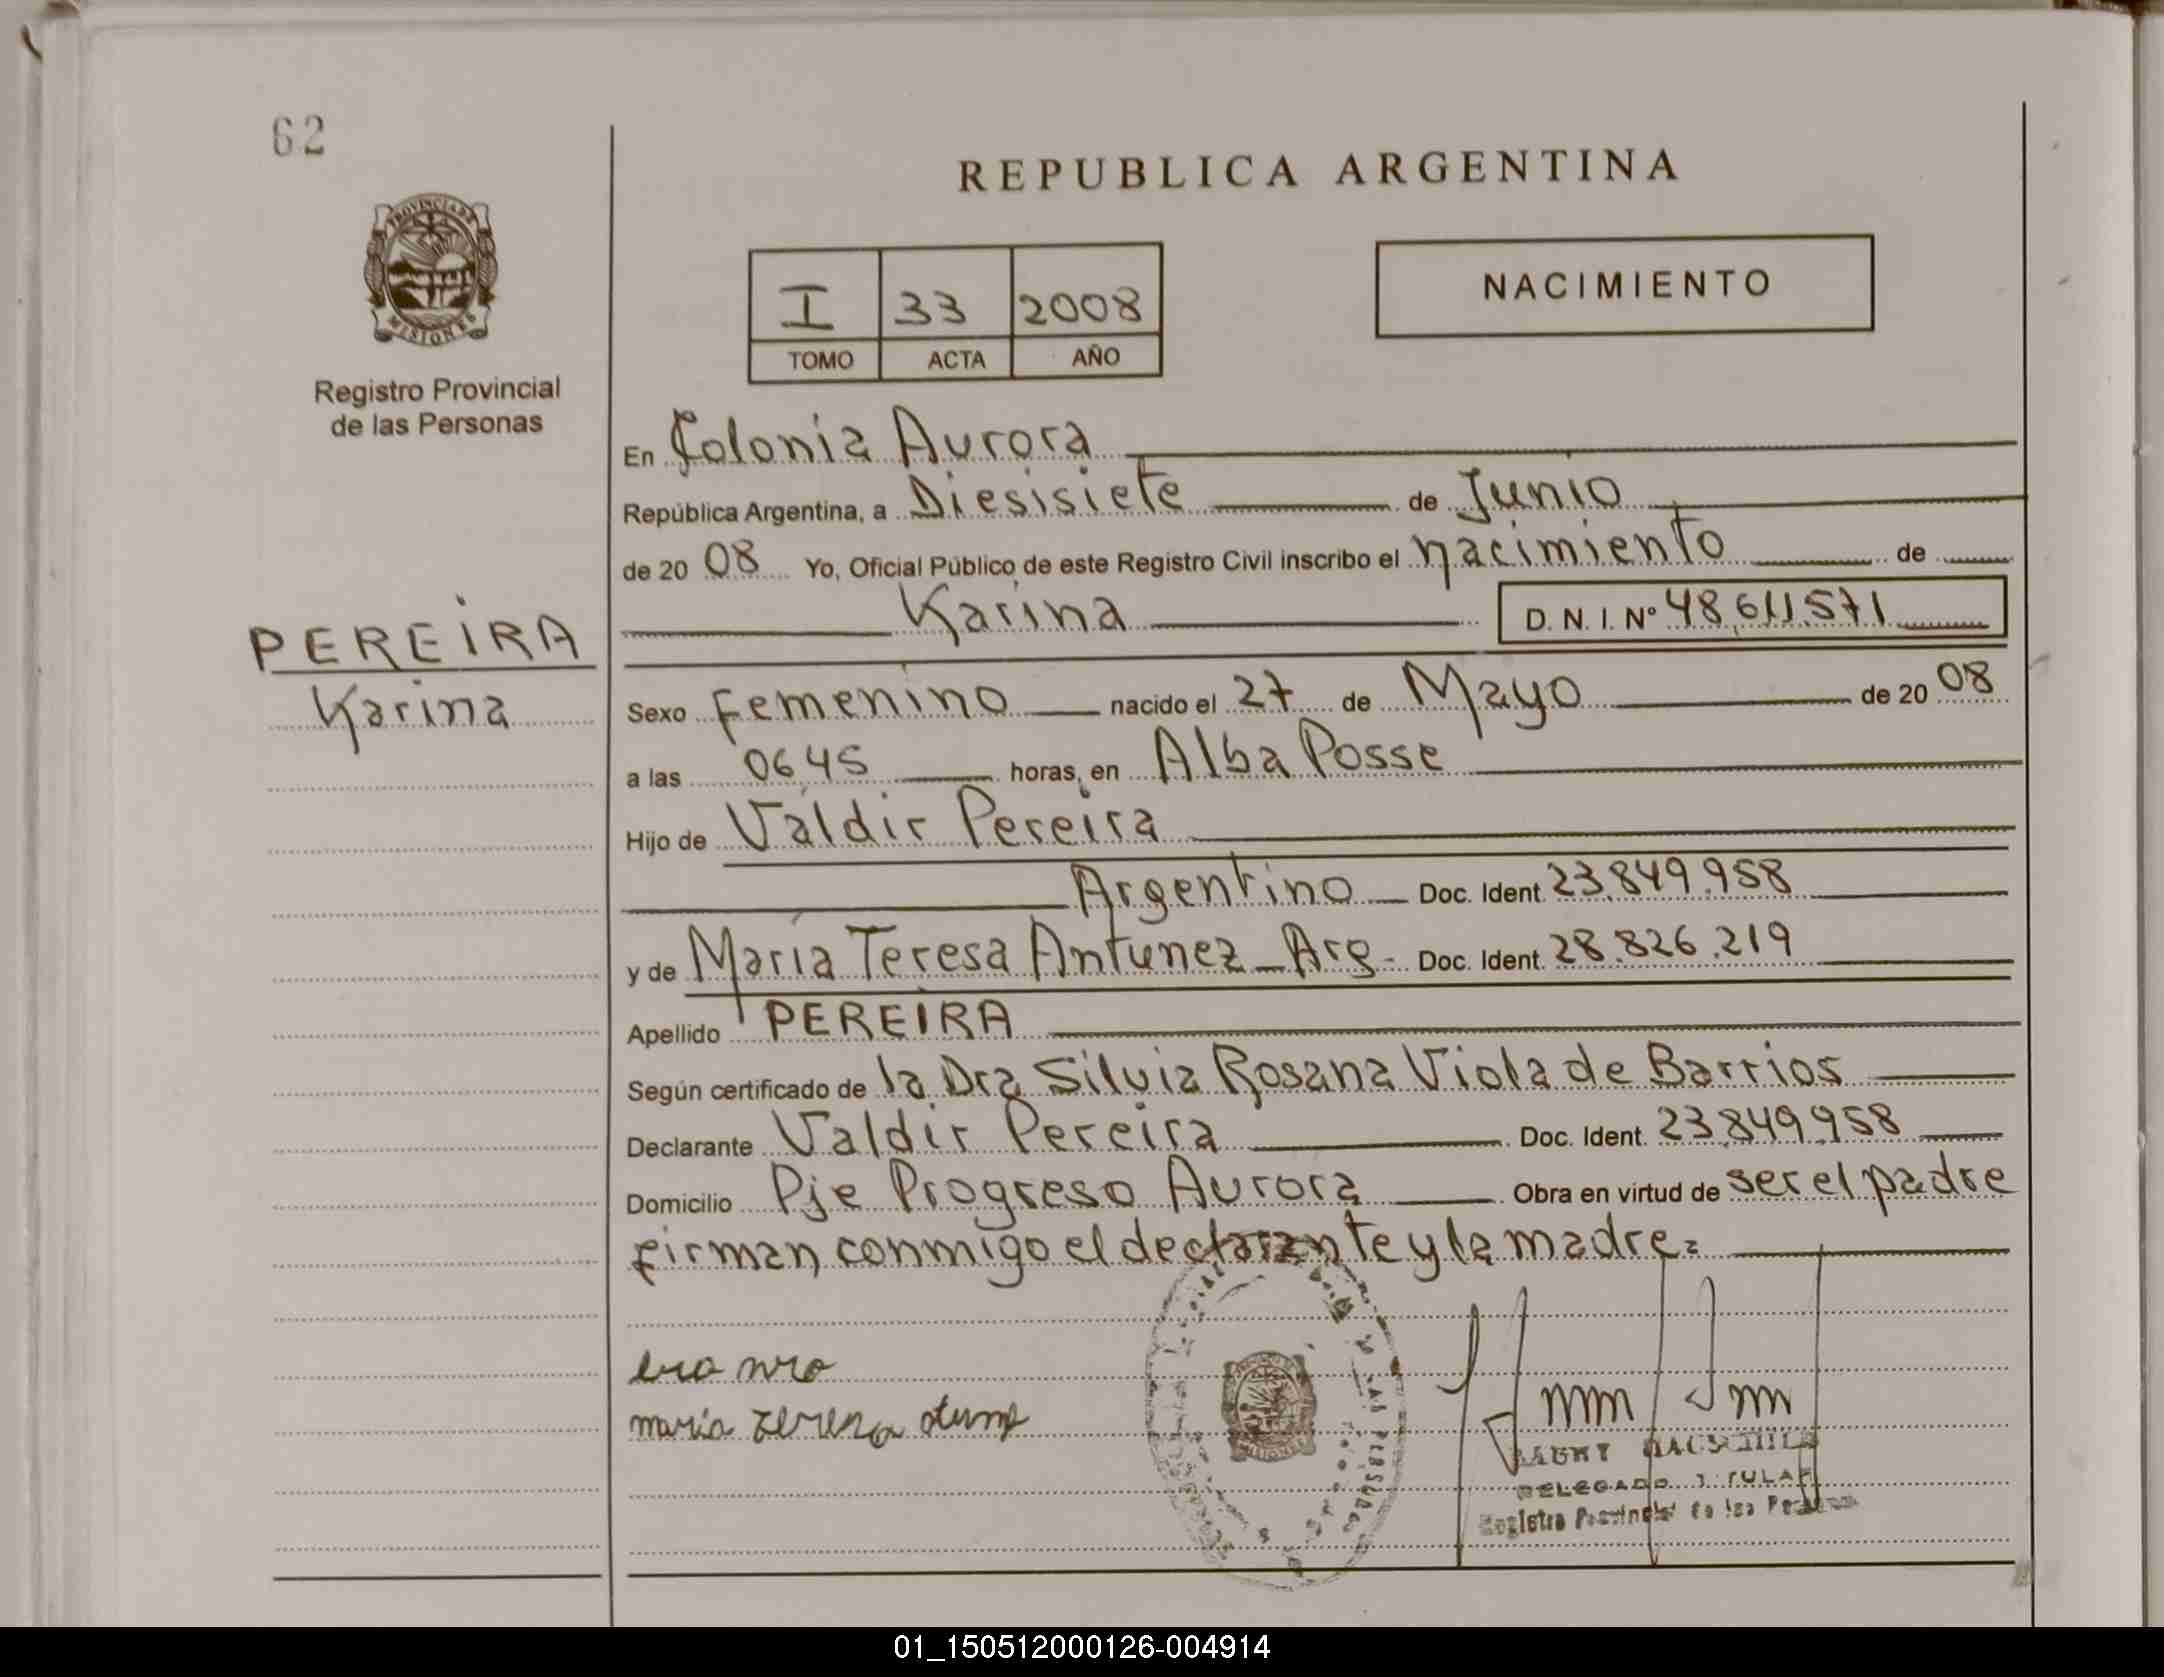 62
REPUBLICA ARGENTINA
PROVINCIA DE
MISIONES
Registro Provincial
de las Personas
I 33 2008
TOMO ACTA AÑO
NACIMIENTO
En Colonia Aurora
República Argentina, a Diesisiete de Junio
de 20 08 Yo, Oficial Público de este Registro Civil inscribo el nacimiento de
Karina D. N. I. Nº 48.611.571
PEREIRA
Karina
Sexo Femenino nacido el 27 de Mayo de 20 08
a las 0645 horas, en Alba Posse
Hijo de Valdir Pereira
Argentino Doc. Ident. 23.849.958
y de María Teresa Antunez - Arg. Doc. Ident. 28.826.219
Apellido PEREIRA
Según certificado de la Dra Silvia Rosana Viola de Barrios
Declarante Valdir Pereira Doc. Ident. 23.849.958
Domicilio Pje Progreso Aurora Obra en virtud de ser el padre
firman conmigo el declarante y la madre=
maria
DELEGADO TITULAR
Registro Provincial de las Personas
01_150512000126-004914